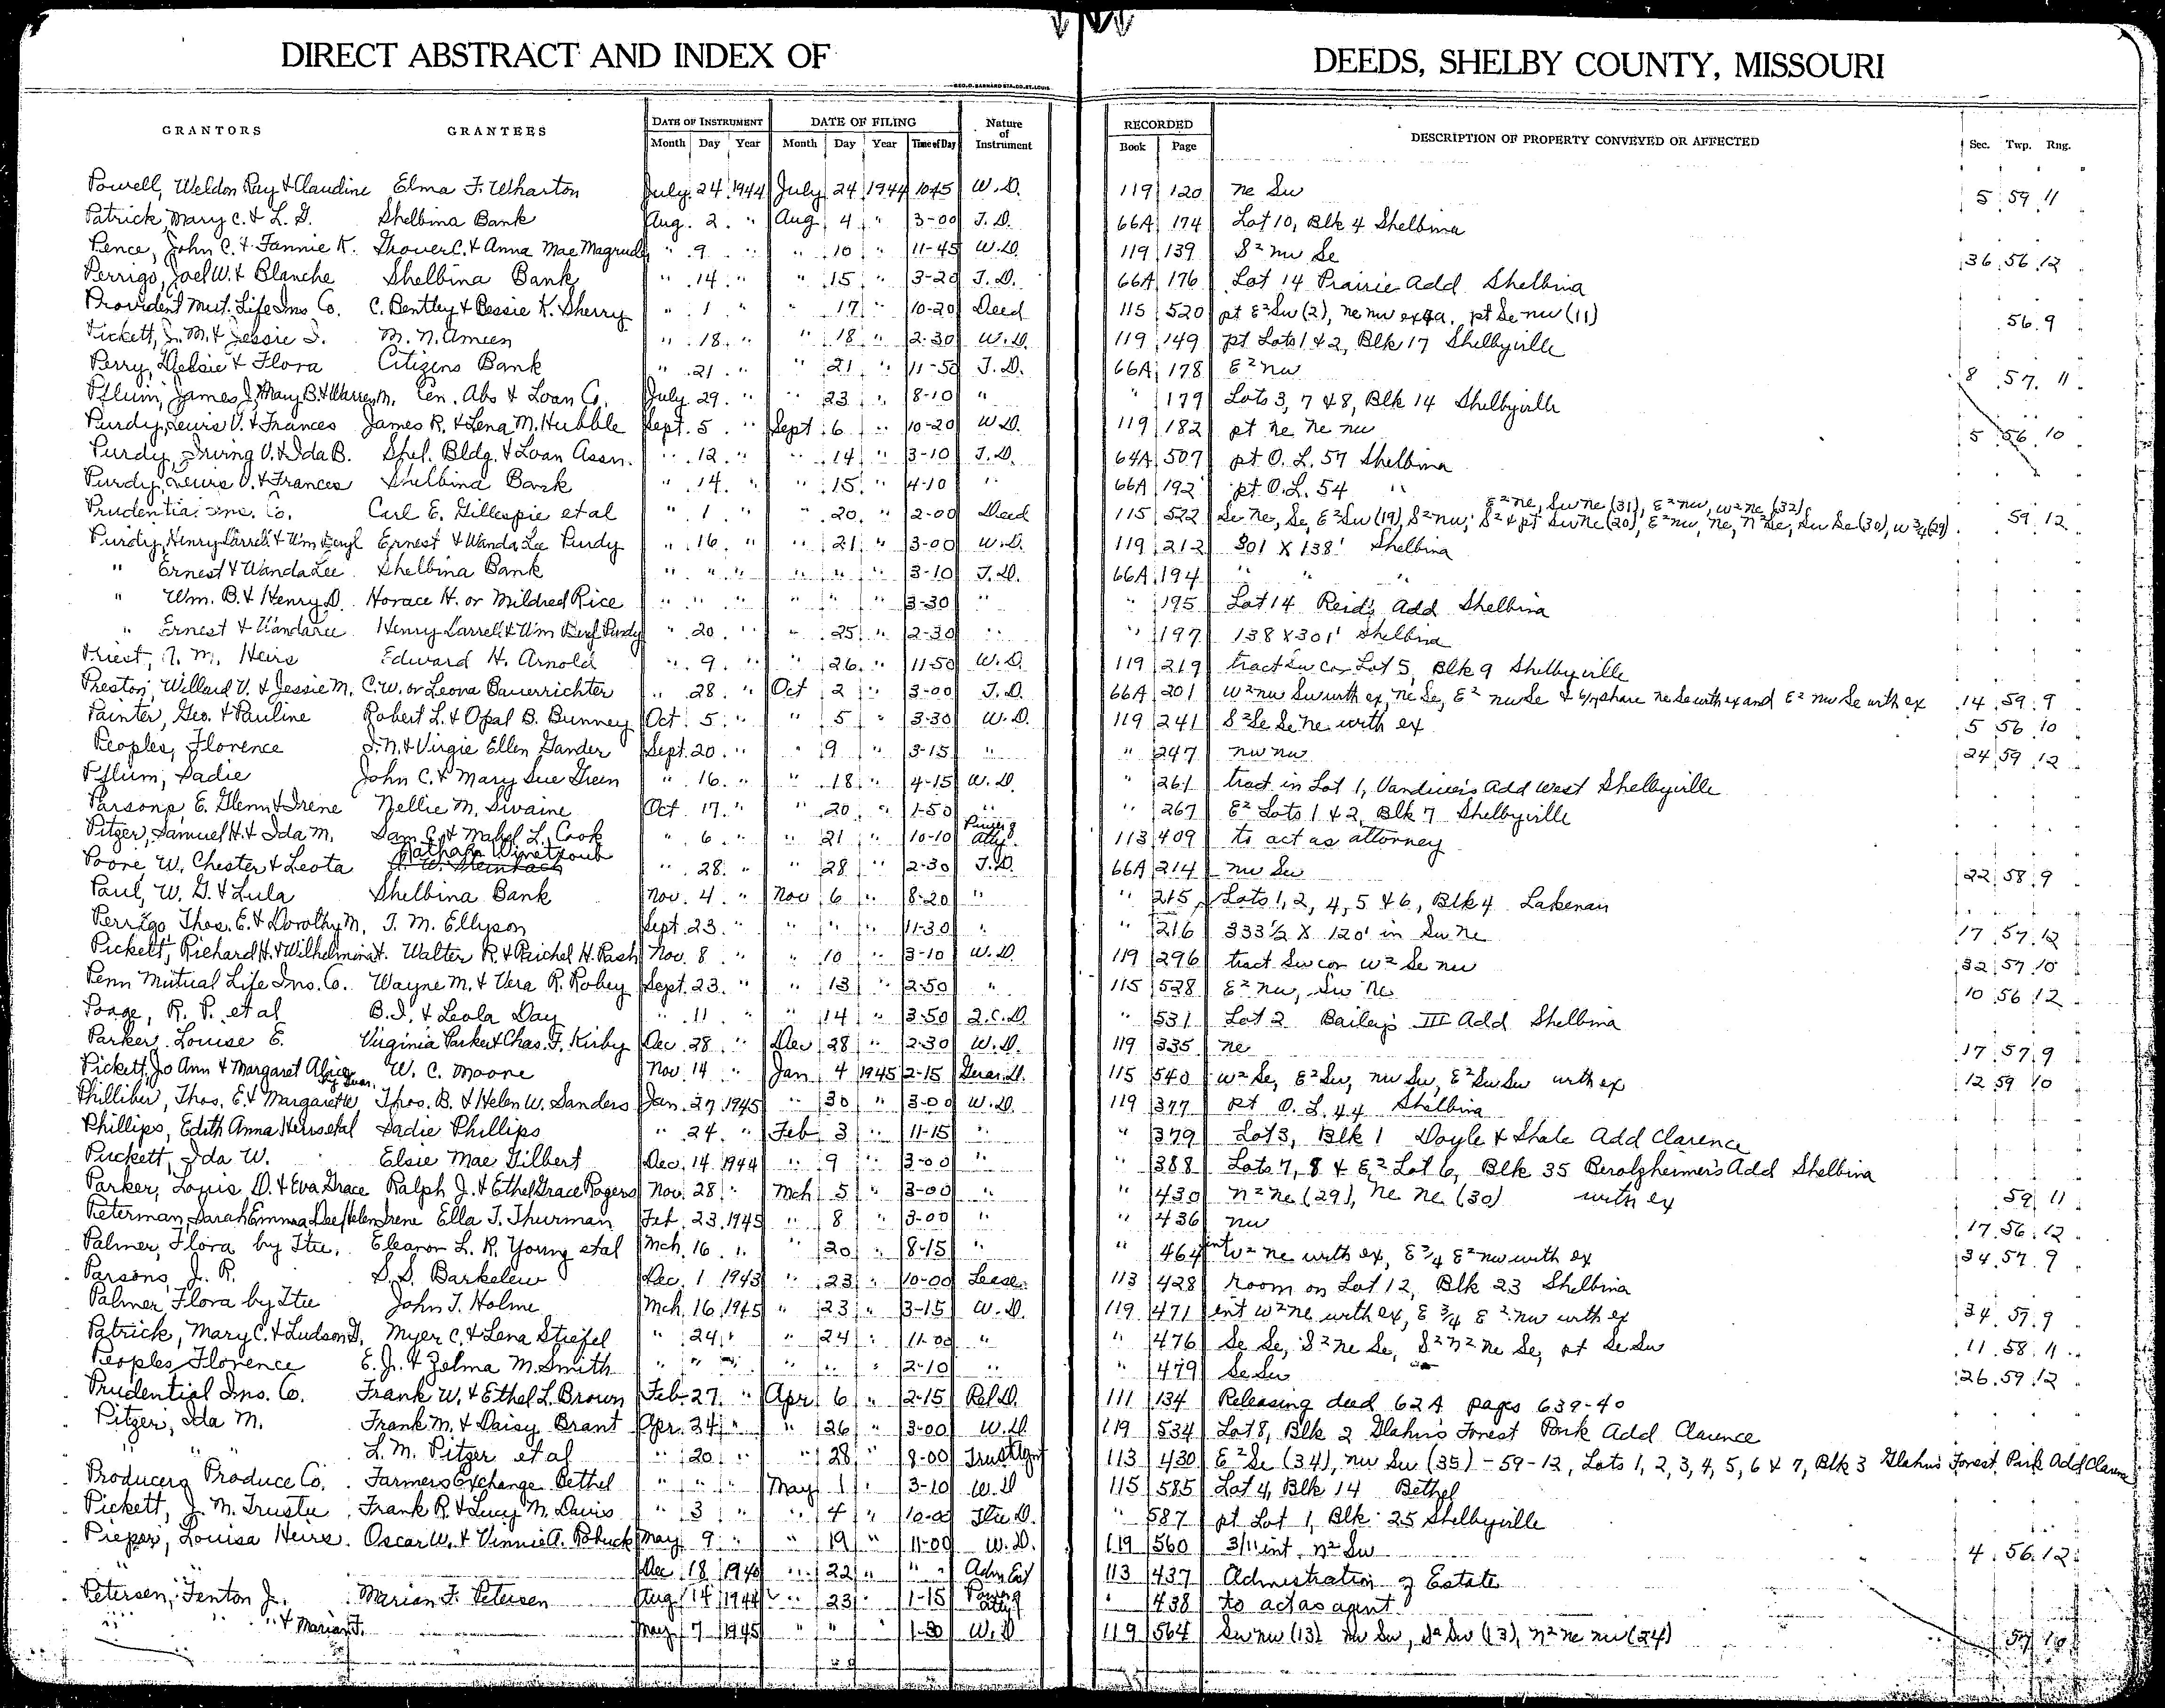 DIRECT ABSTRACT AND INDEX OF DEEDS, SHELBY COUNTY, MISSOURI
GEO.D. BARNARD STA.CO.ST.LOUIS
GRANTORS GRANTEES DATE OF INSTRUMENT DATE OF FILING Nature of Instrument RECORDED DESCRIPTION OF PROPERTY CONVEYED OR AFFECTED Sec. Twp. Rng.
Month Day Year Month Day Year Time of Day Book Page
Powell, Weldon Ray & Claudine Elma F. Wharton July 24 1944 July 24 1944 10-45 W.D. 119 120 ne Sw 5 59 11
Patrick, Mary C. & L. G. Shelbina Bank Aug. 2 " Aug 4 " 3-00 T.D. 66A 174 Lot 10, Blk 4 Shelbina
Pence, John C. & Fannie K. Grover C. & Anna Mae Magruder " 9 " " 10 " 11-45 W.D. 119 139 S² nw Se 36 56 12
Perrigo, Joel W. & Blanche Shelbina Bank " 14 " " 15 " 3-20 T.D. 66A 176 Lot 14 Prairie Add Shelbina
Provident Mut. Life Ins Co. C. Bentley & Bessie K. Sherry " 1 " " 17 " 10-20 Deed 115 520 pt E² Sw (2), ne nw ex 9a. pt Se nw (11) 56 9
Pickett, J. M. & Jessie I. M. N. Ameen " 18 " " 18 " 2-30 W.D. 119 149 pt Lots 1 & 2, Blk 17 Shelbyville
Perry, Delsie & Flora Citizens Bank " 21 " " 21 " 11-50 T.D. 66A 178 E² nw 8 57 11
Pflum, James J, Mary B. & Warren M. Cen. Abs & Loan Co. July 29 " " 23 " 8-10 " " 179 Lots 3, 7 & 8, Blk 14 Shelbyville
Purdy, Lewis V. & Frances James R. & Lena M. Hubble Sept. 5 " Sept 6 " 10-20 W.D. 119 182 pt ne ne nw 5 56 10
Purdy, Irving V. & Ida B. Shel. Bldg. & Loan Assn. " 12 " " 14 " 3-10 T.D. 64A 507 pt O. L. 57 Shelbina
Purdy, Lewis V. & Frances Shelbina Bank " 14 " " 15 " 4-10 " 66A 192 pt O.L. 54 "
E² ne, Sw ne (31), E² nw, W² ne (32)
Prudential Ins. Co. Carl E. Gillespie et al " 1 " " 20 " 2-00 Deed 115 522 Se ne, Se, E² Sw (19), S² nw, S² & pt Sw ne (20), E² nw, ne, N² Se, Sw Se (30), W ¾ (29) 59 12
Purdy, Henry Darrell & Wm Beryl Ernest & Wanda Lee Purdy " 16 " " 21 " 3-00 W.D. 119 212 301 X 138' Shelbina
" Ernest & Wanda Lee Shelbina Bank " " " " " " 3-10 T.D. 66A 194 " " "
" Wm. B. & Henry D. Horace H. or Mildred Rice " " " " " " 3-30 " " 195 Lot 14 Reid's Add Shelbina
" Ernest & Wanda Lee Henry Darrell & Wm Beryl Purdy " 20 " 25 " 2-30 " " 197 138 X 301' Shelbina
Priest, T. M. Heirs Edward H. Arnold " 9 " " 26 " 11-50 W.D. 119 219 tract Sw cor Lot 5, Blk 9 Shelbyville
Preston, Willard V. & Jessie M. C.W. or Leona Bauerrichter " 28 " Oct 2 " 3-00 T.D. 66A 201 W² nw Sw with ex, ne Se, E² nw Se & 6/7 share ne Se with ex and E² nw Se with ex 14 59 9
Painter, Geo. & Pauline Robert L. & Opal B. Bunney Oct 5 " " 5 " 3-30 W.D. 119 241 S² Se Se ne with ex 5 56 10
Peoples, Florence J. N. & Virgie Ellen Gander Sept. 20 " " 9 " 3-15 " " 247 nw nw 24 59 12
Pflum, Sadie John C. & Mary Sue Green " 16 " " 18 " 4-15 W.D. " 261 tract in Lot 1, Vandiver's Add West Shelbyville
Parsons, E. Glenn & Irene Nellie M. Swaine Oct 17 " " 20 " 1-50 " " 267 E² Lots 1 & 2, Blk 7 Shelbyville
Pitzer, Samuel H. & Ida M. Sam C. & Mabel L. Cook " 6 " " 21 " 10-10 Power of Atty. 113 409 to act as attorney
Nathan Winetroub
Poore, W. Chester & Leota " 28 " " 28 " 2-30 T.D. 66A 214 nw Sw 22 58 9
Paul, W. G. & Lula Shelbina Bank Nov. 4 " Nov 6 " 8-20 " " 215 Lots 1, 2, 4, 5 & 6, Blk 4 Lakenan
Perrigo, Thos. E. & Dorothy M. T. M. Ellyson Sept. 23 " " " " 11-30 " " 216 333½ X 120' in Sw ne 17 57 12
Pickett, Richard H. & Wilhelmina H. Walter R. & Raichel H. Rash Nov. 8 " " 10 " 3-10 W.D. 119 296 tract Sw cor W² Se nw 32 57 10
Penn Mutual Life Ins. Co. Wayne M. & Vera R. Robey Sept. 23 " " 13 " 2-50 " 115 528 E² nw, Sw ne 10 56 12
Poage, R. P. et al B.I. & Leola Day " 11 " " 14 " 3-50 Q.C.D. " 531 Lot 2 Bailey's III Add Shelbina
Parker, Louise E. Virginia Parker & Chas. F. Kirby Dec. 28 " Dec 28 " 2-30 W.D. 119 335 ne 17 57 9
Pickett, Jo Ann & Margaret Alice by Guar. W. C. Moore Nov. 14 " Jan 4 1945 2-15 Guar. D. 115 540 W² Se, E² Sw, nw Sw, E² Sw Sw with ex 12 59 10
Philliber, Thos. E. & Margarette Thos. B. & Helen W. Sanders Jan. 27 1945 " 30 " 3-00 W.D. 119 377 pt O. L. 44 Shelbina
Phillips, Edith Anna Heirs et al Sadie Phillips " 24 " Feb 3 " 11-15 " " 379 Lot 3, Blk 1 Doyle & Shale Add Clarence
Puckett, Ida W. Elsie Mae Gilbert Dec. 14 1944 " 9 " 3-00 " " 388 Lots 7, 8 & E² Lot 6, Blk 35 Berolzheimer's Add Shelbina
Parker, Louis D. & Eva Grace Ralph J. & Ethel Grace Rogers Nov. 28 " Mch 5 " 3-00 " " 430 N² ne (29), ne ne (30) with ex 59 11
Peterman, Sarah Emma Dee Helen Irene Ella T. Thurman Feb. 23 1945 " 8 " 3-00 " " 436 nw 17 56 12
Palmer, Flora by Ttee. Eleanor L. R. Young et al Mch. 16 " " 20 " 8-15 " " 464 int W² ne with ex, E ¾ E² nw with ex 34 57 9
Parsons, J. R. S. S. Barkelew Dec. 1 1943 " 23 " 10-00 Lease 113 428 room on Lot 12, Blk 23 Shelbina
Palmer, Flora by Ttee John T. Holme Mch. 16 1945 " 23 " 3-15 W.D. 119 471 int W² ne with ex, E ¾ E² nw with ex 34 59 9
Patrick, Mary C. & Ludson G. Myer C. & Lena Stiefel " 24 " " 24 " 11-00 " " 476 Se Se, S² ne Se, S² N² ne Se, pt Se Sw 11 58 11
Peoples, Florence E. J. & Zelma M. Smith " " " " " " 2-10 " " 479 Se Sw 26 59 12
Prudential Ins. Co. Frank W. & Ethel L. Brown Feb. 27 " Apr 6 " 2-15 Rel D. 111 134 Releasing deed 62A pages 639-40
Pitzer, Ida M. Frank M. & Daisy Brant Apr. 24 " " 26 " 3-00 W.D. 119 534 Lot 8, Blk 2 Glahn's Forest Park Add Clarence
" " L. M. Pitzer et al " 20 " " 28 " 8-00 Trust Agmt 113 430 E² Se (34), nw Sw (35) - 59-12, Lots 1, 2, 3, 4, 5, 6 & 7, Blk 3 Glahn's Forest Park Add Clarence
Producers Produce Co. Farmers Exchange Bethel " " " May 1 " 3-10 W.D 115 585 Lot 4, Blk 14 Bethel
Pickett, J. M. Trustee Frank R. & Lucy M. Davis " 3 " " 4 " 10-00 Ttee D. " 587 pt Lot 1, Blk 25 Shelbyville
Pieper, Louisa Heirs Oscar W. & Vinnie A. Robuck May 9 " " 19 " 11-00 W.D. 119 560 3/11 int N² Sw 4 56 12
" Dec 18 1940 " 22 " " Adm Est 113 437 Admistration of Estate
Petersen, Fenton J. Marian F. Petersen Aug 14 1944 " 23 " 1-15 Power of Atty " 438 to act as agent
" " & Marian F. May 7 1945 " " " 1-30 W.D 119 564 Sw nw (13) nw Sw, S² Sw (13), N² ne nw (24)